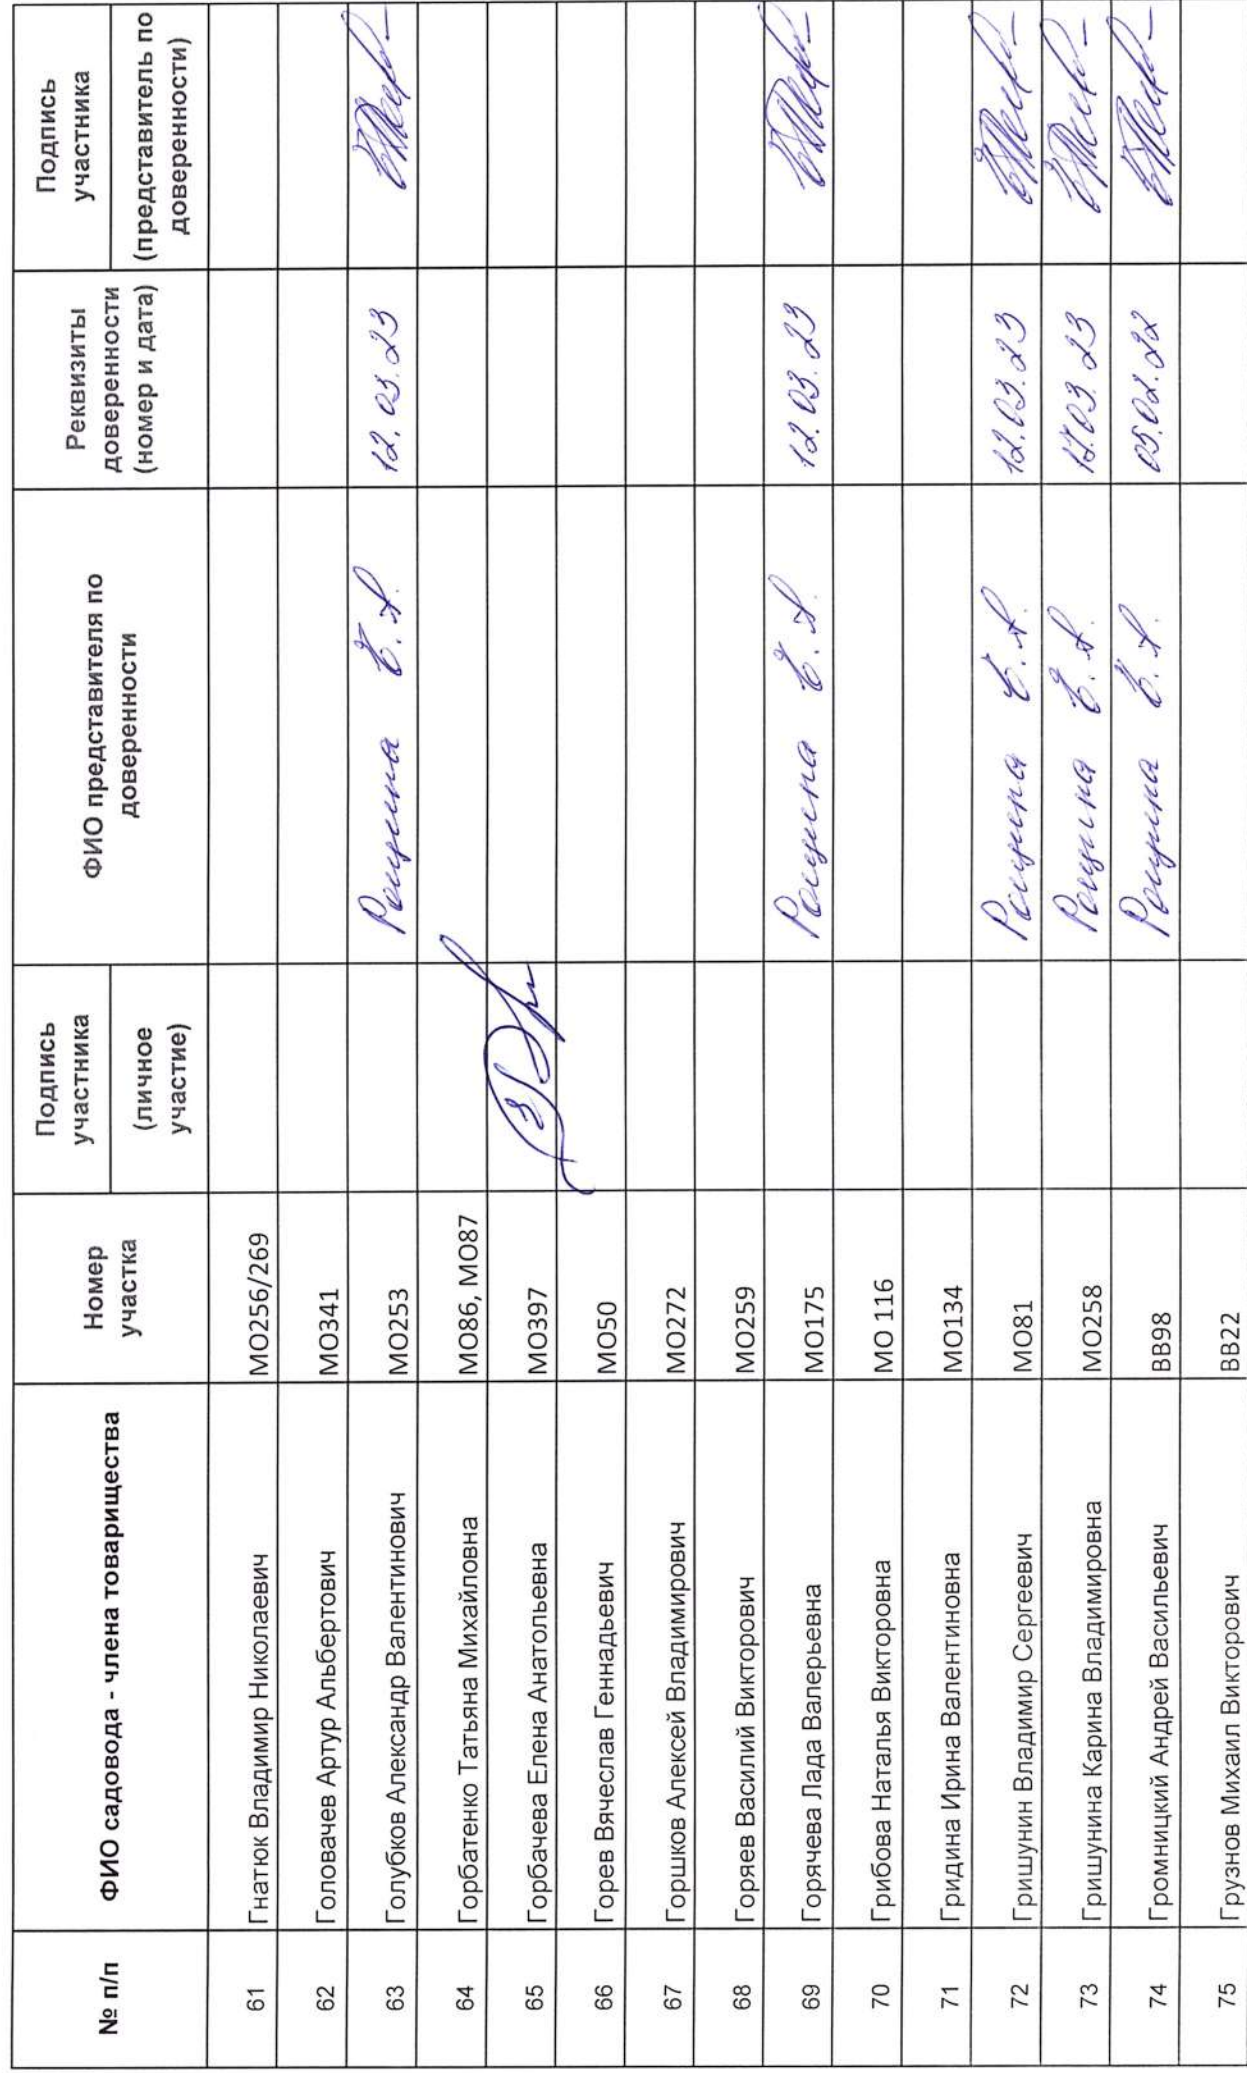 № п/п ФИО садовода - члена товарищества Номер участка Подпись участника (личное участие) ФИО представителя по доверенности Реквизиты доверенности (номер и дата) Подпись участника (представитель по доверенности)
61 Гнатюк Владимир Николаевич МО256/269
62 Головачев Артур Альбертович МО341
63 Голубков Александр Валентинович МО253 Рощина Е.А. 12.03.23
64 Горбатенко Татьяна Михайловна МО86, МО87
65 Горбачева Елена Анатольевна МО397
66 Горев Вячеслав Геннадьевич МО50
67 Горшков Алексей Владимирович МО272
68 Горяев Василий Викторович МО259
69 Горячева Лада Валерьевна МО175 Рощина Е.А. 12.03.23
70 Грибова Наталья Викторовна МО 116
71 Гридина Ирина Валентиновна МО134
72 Гришунин Владимир Сергеевич МО81 Рощина Е.А. 12.03.23
73 Гришунина Карина Владимировна МО258 Рощина Е.А. 12.03.23
74 Громницкий Андрей Васильевич ВВ98 Рощина Е.А. 05.02.22
75 Грузнов Михаил Викторович ВВ22